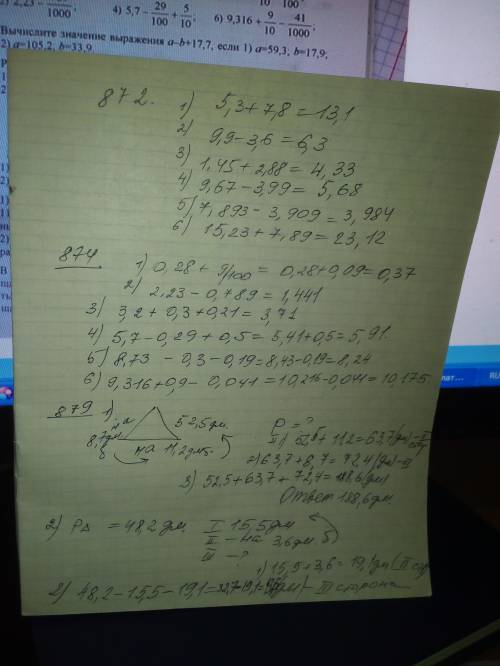 1000; 4) 5,7 − 29/100 + 5/10; 6) 9,316 + 9/10 − 41/1000.
Вычислите значение выражения a−b+17,7, если 1) a=59,3; b=17,9;
2) a=105,2; b=33,9
872. 1) 5,3+7,8=13,1
2) 9,9−3,6=6,3
3) 1,45+2,88=4,33
4) 9,67−3,99=5,68
5) 7,893−3,909=3,984
6) 15,23+7,89=23,12
874 1) 0,28+9/100=0,28+0,09=0,37
2) 2,23−0,789=1,441
3) 3,2+0,3+0,21=3,71
4) 5,7−0,29+0,5=5,41+0,5=5,91
5) 8,73−0,3−0,19=8,43−0,19=8,24
6) 9,316+0,9−0,041=10,216−0,041=10,175
879 1)
на 52,5дм. P=?
8,7дм на 11,2дм б. + 11,2=63,7(дм)
б 2) 63,7+8,7=72,4(дм)
3) 52,5+63,7+72,4=188,6(дм)
Ответ 188,6дм.
2) P∆ =48,2дм. I 15,5дм
II − на 3,6дм б)
III − ?
1) 15,5+3,6=19,1дм(II
2) 48,2−15,5−19,1=32,7−19,1= (дм)−III сторона